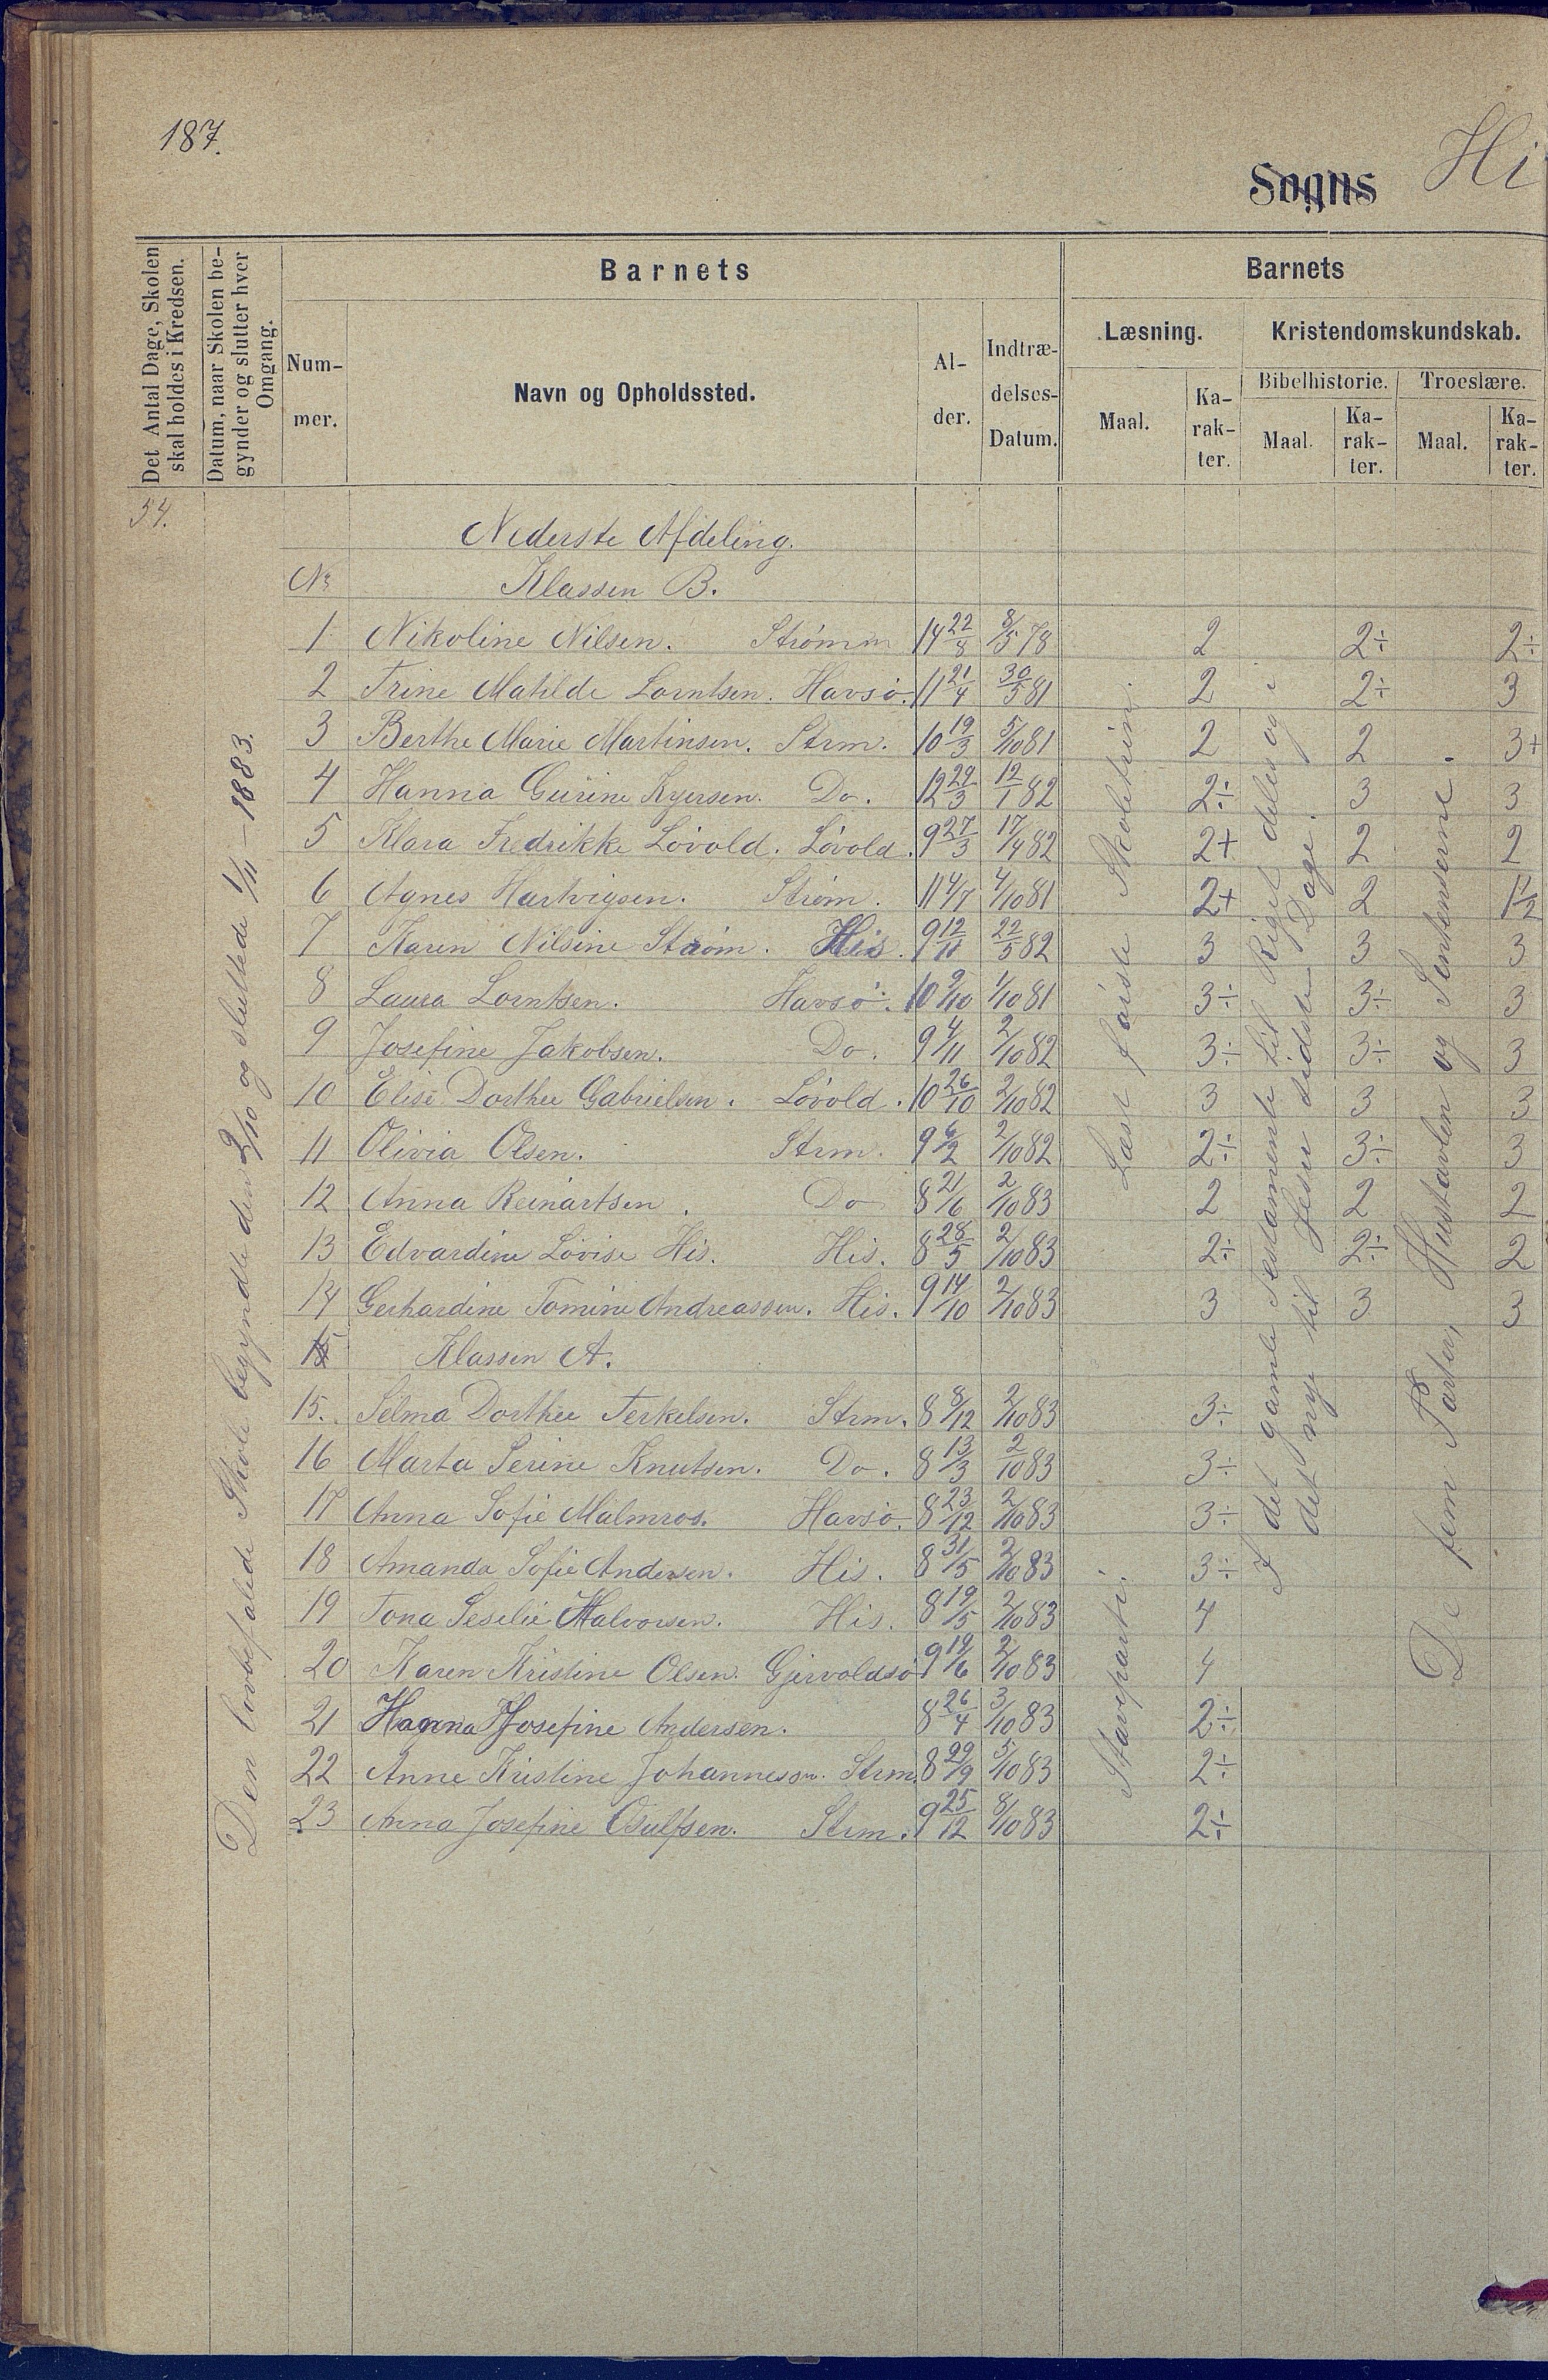 187.
Sogns Hi
Det Antal Dage, Skolen skal holdes i Kredsen.
Datum, naar Skolen be-gynder og slutter hver Omgang.
Barnets
Barnets
Num-mer.
Navn og Opholdssted.
Al-der.
Indtræ-delses-Datum.
Læsning.
Kristendomskundskab.
Bibelhistorie.
Troeslære.
Maal.
Ka-rak-ter.
Maal.
Ka-rak-ter.
Maal.
Ka-rak-ter.
54.
Nederste Afdeling.
No Klassen B.
1 Nikoline Nilsen. Strømm 14 22/8 8/5 78 2 2÷ 2÷
2 Trine Matilde Lorntsen. Havsö. 11 21/4 30/5 81 2 2÷ 3
3 Berthe Marie Martinsen. Strm. 10 19/3 5/10 81 2 2 3+
4 Hanna Gurine Kyersen. Do. 12 29/3 12/1 82 2÷ 3 3
5 Klara Fredrikke Lövold. Lövold. 9 27/3 17/4 82 2+ 2 2
6 Agnes Hartvigsen. Strøm. 11 4/7 4/10 81 2+ 2 1½
7 Karen Nilsine Strøm. His. 9 12/11 22/5 82 3 3 3
8 Laura Lorntsen. Havsö. 10 9/10 1/10 81 3÷ 3÷ 3
9 Josefine Jakobsen. Do. 9 4/11 2/10 82 3÷ 3÷ 3
10 Elise Dorthee Gabrielsen. Lövold. 10 26/10 2/10 82 3 3 3
11 Olivia Olsen. Strm. 9 6/2 2/10 82 2÷ 3÷ 3
12 Anna Reinartsen. Do 8 21/6 2/10 83 2 2 2
13 Edvardine Lovise His. His. 8 28/5 2/10 83 2÷ 2÷ 2
14 Gerhardine Tomine Andreassen. His. 9 14/10 2/10 83 3 3 3
15 Klassen A.
15. Selma Dorthee Terkelsen. Strm. 8 8/12 2/10 83 3÷
16 Marta Serine Knutsen. Do. 8 13/3 2/10 83 3÷
17 Anna Sofie Malmros. Havsö. 8 23/12 2/10 83 3÷
18 Amanda Sofie Andersen. His. 8 31/5 2/10 83 3÷
19 Tona Seselie Halvorsen. His. 8 19/5 2/10 83 4
20 Karen Kristine Olsen. Gjervoldsö 9 19/6 2/10 83 4
21 Hanna Josefine Andersen. 8 26/4 3/10 83 2÷
22 Anne Kristine Johannessn. Strm. 8 29/9 5/10 83 2÷
23 Anna Josefine Osulfsen. Strm. 9 25/12 8/10 83 2÷
Den lovbefalede Skole begyndte den 2/10 og sluttede 1/11 – 1883.
Læst første Skoletrin.
Staveparti.
I det gamle Testamente til Riget deles og i
det nye til Jesu sidste Dage.
De fem Parter, Hustavlen og Sentenserne.